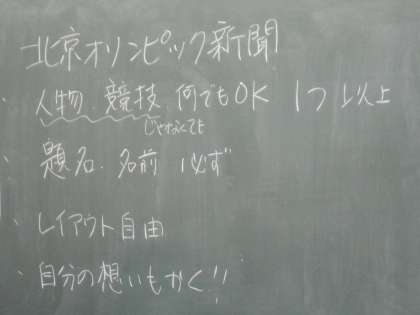 北京オリンピック新聞
・人物、競技、何でもOK 1つ以上
じゃなくても
・題名、名前 必ず
・レイアウト自由
・自分の想いもかく!!